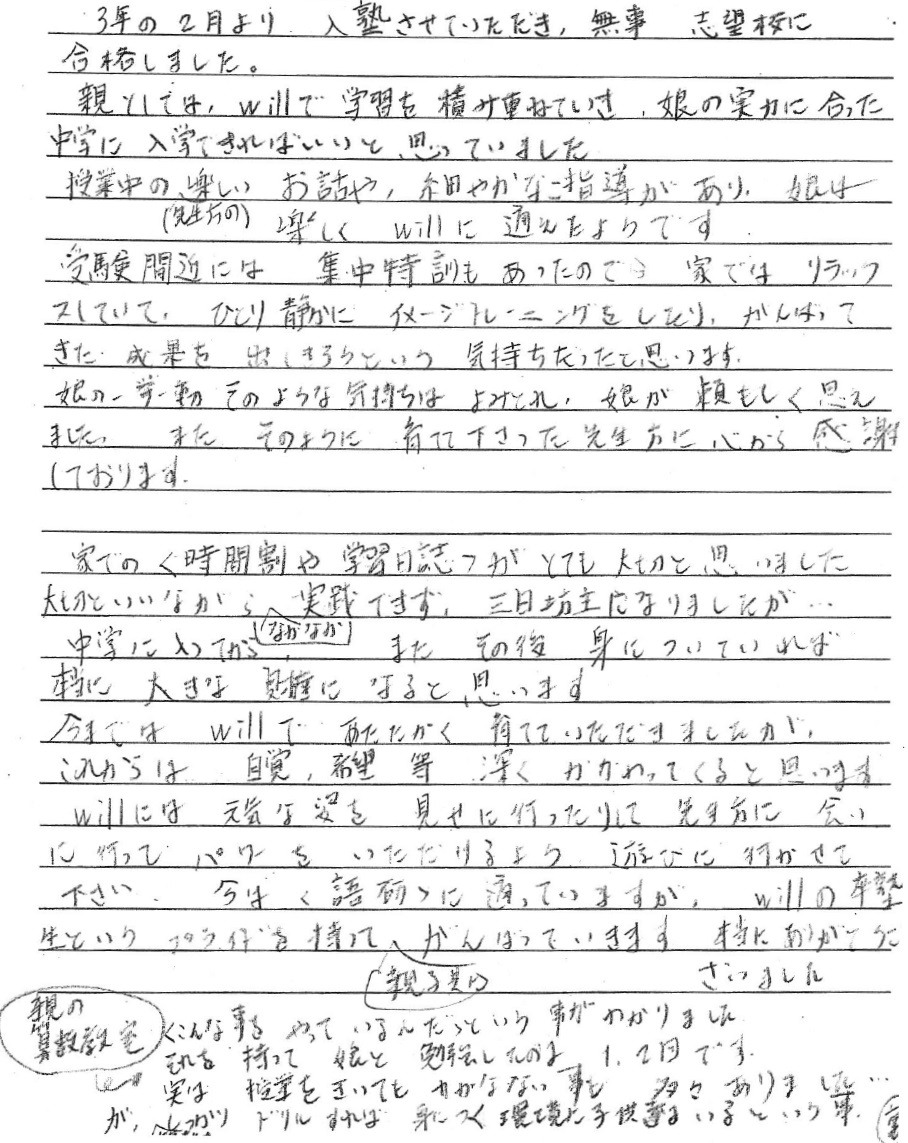 3年の2月より 入塾させていただき, 無事 志望校に
合格しました。
親としては, willで 学習を 積み重ねていき, 娘の実力に合った
中学に 入学できればいいと 思っていました
授業中の 楽しい お話や, 細やかなご指導が あり, 娘は
(先生方の) 楽しく willに 通えたようです
受験間近には 集中特訓も あったので 家では リラック
スしていて, ひとり静かに イメージトレーニングをしたり, がんばって
きた 成果を 出しきろうという 気持ちだったと思います.
娘の一挙一動 そのような気持ちは よみとれ, 娘が 頼もしく思え
ました. また そのように 育てて下さった先生方に心から感謝
しております.
家での く時間割や 学習日誌>が とても 大切と思いました
大切といいながら 実践できず, 三日坊主になりましたが…
なかなか
中学に入ってから, また その後 身についていれば
本当に 大きな 財産に なると 思います
今までは willで あたたかく 育てていただきましたが,
これからは 自覚, 希望 等 深く かかわってくると思います
willには 元気な姿を 見せに行ったりして 先生方に 会い
に行って パワーを いただけるよう 遊びに行かせて
下さい. 今は <語研>に 通っていますが, willの卒塾
生という プライドを持って がんばっていきます 本当にありがとうご
親子共
ざいました
親の
算数教室
くこんな事を やっているんだっという 事がわかりました
それを 持って 娘と 勉強したのは 1, 2回です.
実は 授業をきいても わからない事も 多々ありました…
が, ドリルすれば 身につく 環境に子供達はいるという事.